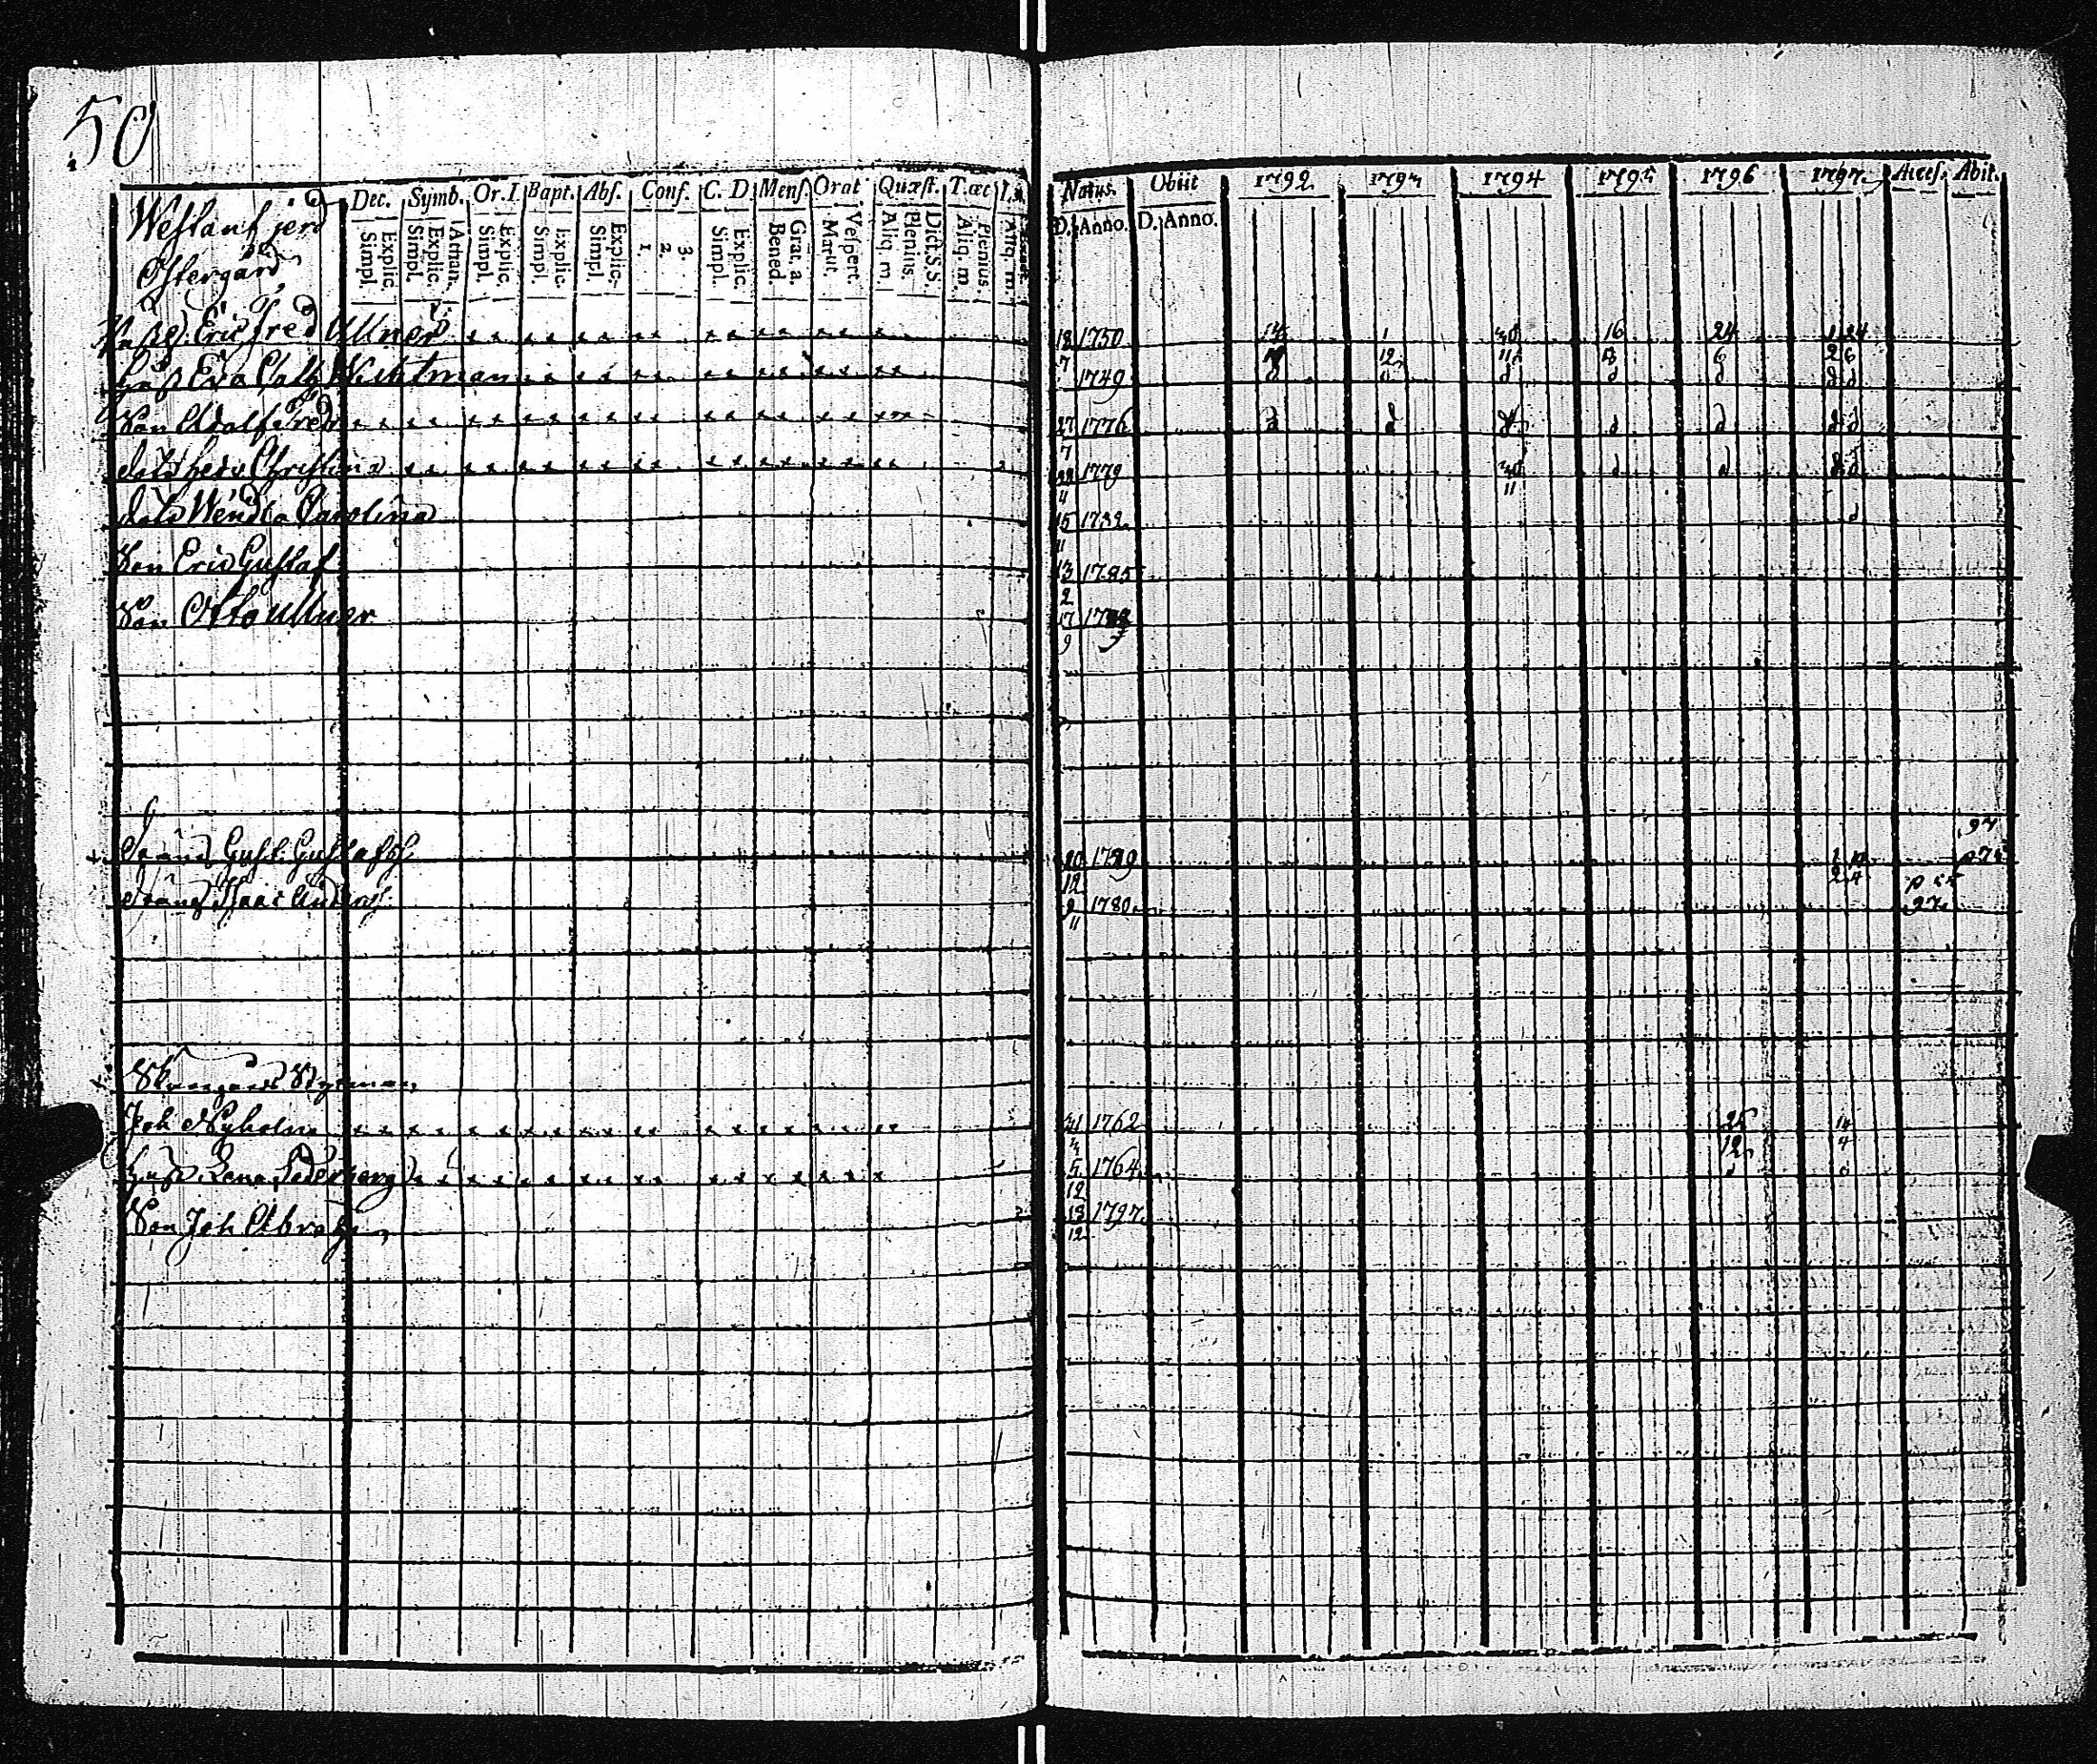 50
Dec. Symb. Or. I. Bapt. Abs. Conf. C. D. Mens. Orat. Quæst. T. œc.
Natus. Obiit 1792 1793 1794 1795 1796 1797 Acces. Abit.
Explic. Simpl. Athan. Explic. Simpl. Explic. Simpl. Explic. Simpl. Explic. Simpl. 3. 2. 1. Explic. Simpl. Grat. a. Bened. Vespert. Matut. Dict. S.S. Plenius. Aliq. m. Plenius. Aliq. m. Aliq. m.
D. Anno. D. Anno.
Westanfjerd
Östergård
Eric Fred Ullner 18 1750 14 1 30 16 24 1 24
7 12 11 6 2 6
Hust Eva Cath Wichtman 1749 d d d d d d d
Son Adolf Fred 27 1776 d d d d d d
7
dott Hedv Christina 22 1779 30 d d d d
4 11
dott Wendla Carolina 15 1782 d
11
Son Eric Gustaf 13 1785
2
Son Otto Ullner 17
9
97
Dräng Gust. Gustafss. 20 p 76
12 2 4 p
Dräng Isaac Anderss. 9 1780 97
11
Skeppare Styrman
Joh Nyholm 21 1762 26 14
4 12 4
Hust Lena Söderberg 5 1764 d d
12
Son Joh Abraham 18 1797
12